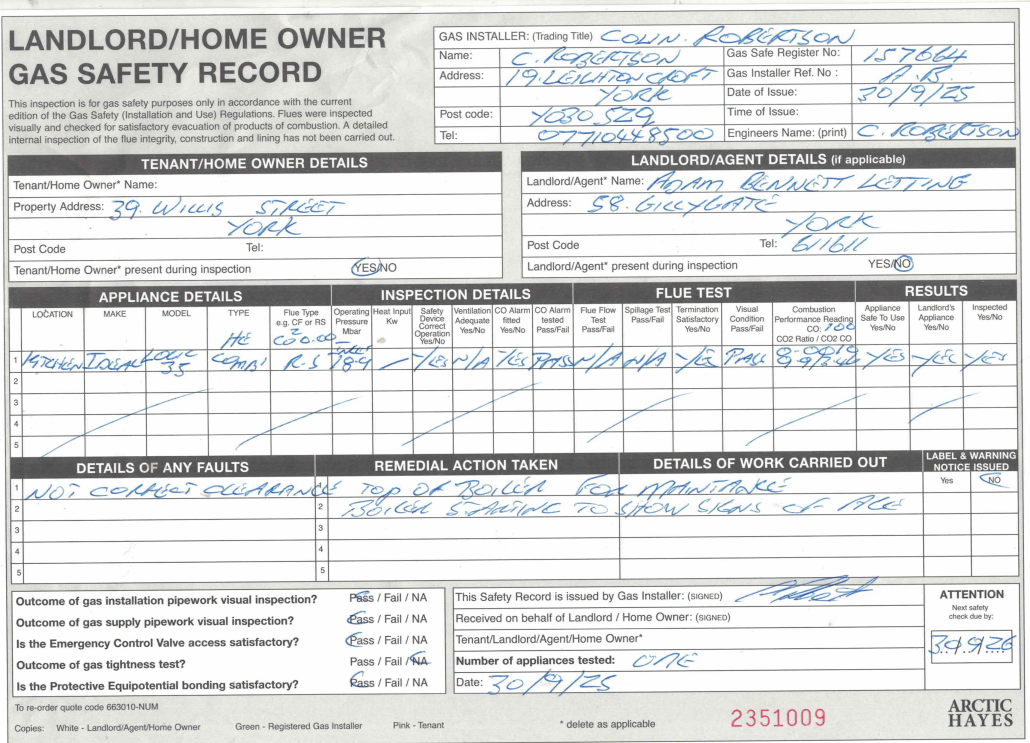 LANDLORD/HOME OWNER
GAS SAFETY RECORD
This inspection is for gas safety purposes only in accordance with the current
edition of the Gas Safety (Installation and Use) Regulations. Flues were inspected
visually and checked for satisfactory evacuation of products of combustion. A detailed
internal inspection of the flue integrity, construction and lining has not been carried out.
GAS INSTALLER: (Trading Title) COLIN. ROBERTSON
Name: C. ROBERTSON Gas Safe Register No: 157664
Address: 19. LEIGHTON CROFT Gas Installer Ref. No : A.B.
YORK Date of Issue: 30/9/25
Post code: YO30 5ZQ Time of Issue:
Tel: 07710448500 Engineers Name: (print) C. ROBERTSON
TENANT/HOME OWNER DETAILS
Tenant/Home Owner* Name:
Property Address: 39. WILLIS STREET
YORK
Post Code Tel:
Tenant/Home Owner* present during inspection YES/NO
LANDLORD/AGENT DETAILS (if applicable)
Landlord/Agent* Name: ADAM BENNETT LETTING
Address: 58. GILLYGATE
YORK
Post Code Tel: 611611
Landlord/Agent* present during inspection YES/NO
APPLIANCE DETAILS INSPECTION DETAILS FLUE TEST RESULTS
LOCATION MAKE MODEL TYPE Flue Type e.g. CF or RS Operating Pressure Mbar Heat Input Kw Safety Device Correct Operation Yes/No Ventilation Adequate Yes/No CO Alarm fitted Yes/No CO Alarm tested Pass/Fail Flue Flow Test Pass/Fail Spillage Test Pass/Fail Termination Satisfactory Yes/No Visual Condition Pass/Fail Combustion Performance Reading CO: CO2 Ratio / CO2 CO Appliance Safe To Use Yes/No Landlord's Appliance Yes/No Inspected Yes/No
HE
1 KITCHEN IDEAL LOGIC 35 COMBI R-S INLET YES N/A YES PASS N/A N/A YES PASS YES YES YES
2
3
4
5
DETAILS OF ANY FAULTS REMEDIAL ACTION TAKEN DETAILS OF WORK CARRIED OUT LABEL & WARNING NOTICE ISSUED
Yes NO
1 NOT CORRECT CLEARANCE 1 TOP OF BOILER FOR MAINTANCE
2 2 BOILER STARTING TO SHOW SIGNS OF AGE
3 3
4 4
5 5
Outcome of gas installation pipework visual inspection? Pass / Fail / NA
Outcome of gas supply pipework visual inspection? Pass / Fail / NA
Is the Emergency Control Valve access satisfactory? Pass / Fail / NA
Outcome of gas tightness test? Pass / Fail / NA
Is the Protective Equipotential bonding satisfactory? Pass / Fail / NA
This Safety Record is issued by Gas Installer: (SIGNED)
Received on behalf of Landlord / Home Owner: (SIGNED)
Tenant/Landlord/Agent/Home Owner*
Number of appliances tested: ONE
Date: 30/9/25
ATTENTION
Next safety
check due by:
30/9/26
To re-order quote code 663010-NUM
Copies: White - Landlord/Agent/Home Owner Green - Registered Gas Installer Pink - Tenant * delete as applicable 2351009
ARCTIC
HAYES